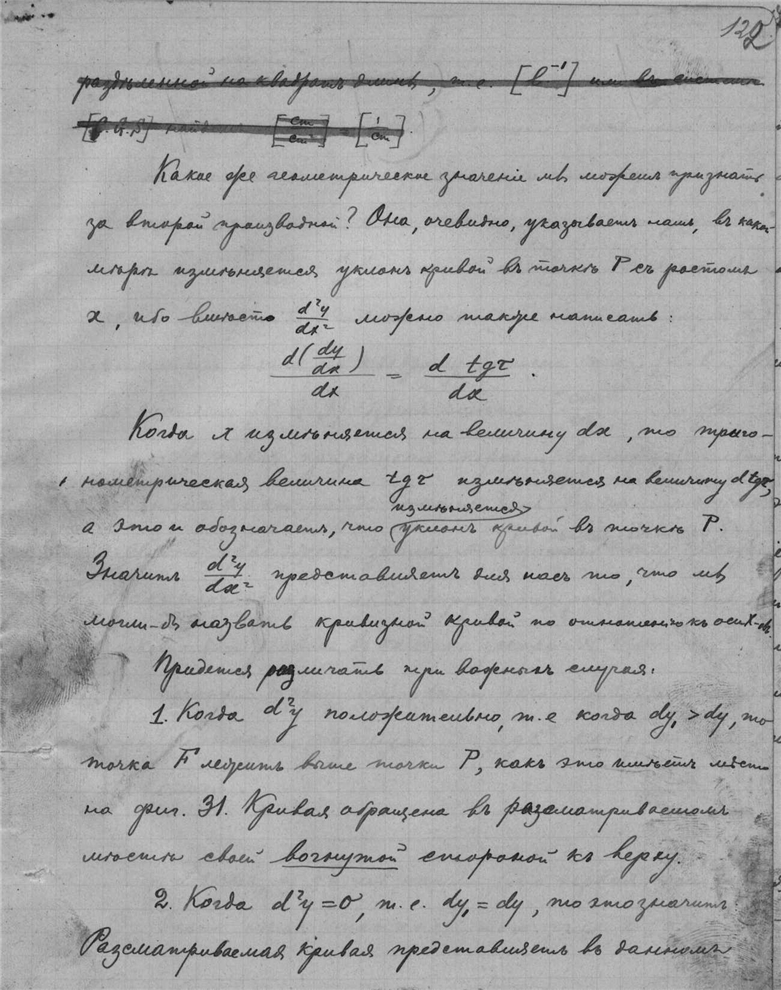 122
раздѣленной на квадратъ длины, т.е. [l⁻¹] или въ системѣ
[C.G.S] [cm/cm²] = [1/cm].
Какое же геометрическое значеніе мы можемъ признать
за второй производной? Она, очевидно, указываетъ намъ, въ какой
мѣрѣ измѣняется уклонъ кривой въ точкѣ P съ ростомъ
x, ибо вмѣсто d²y/dx² можно также написать:
d(dy/dx)/dx = d tgτ/dx.
Когда x измѣняется на величину dx, то триго-
нометрическая величина tgτ измѣняется на величину d tgτ,
измѣняется
а это и обозначаетъ, что уклонъ кривой въ точкѣ P.
Значитъ d²y/dx² представляетъ для насъ то, что мы
могли-бы назвать кривизной кривой по отношенію къ оси X-въ.
Придется различать три важныхъ случая:
1. Когда d²y положительно, т.е когда dy₁ > dy, то
точка F лежитъ выше точки P, какъ это имѣетъ мѣсто
на фиг. 31. Кривая обращена въ разсматриваемомъ
мѣстѣ своей вогнутой стороной къ верху.
2. Когда d²y = 0, т.е. dy₁ = dy, то это значитъ:
Разсматриваемая кривая представляетъ въ данномъ